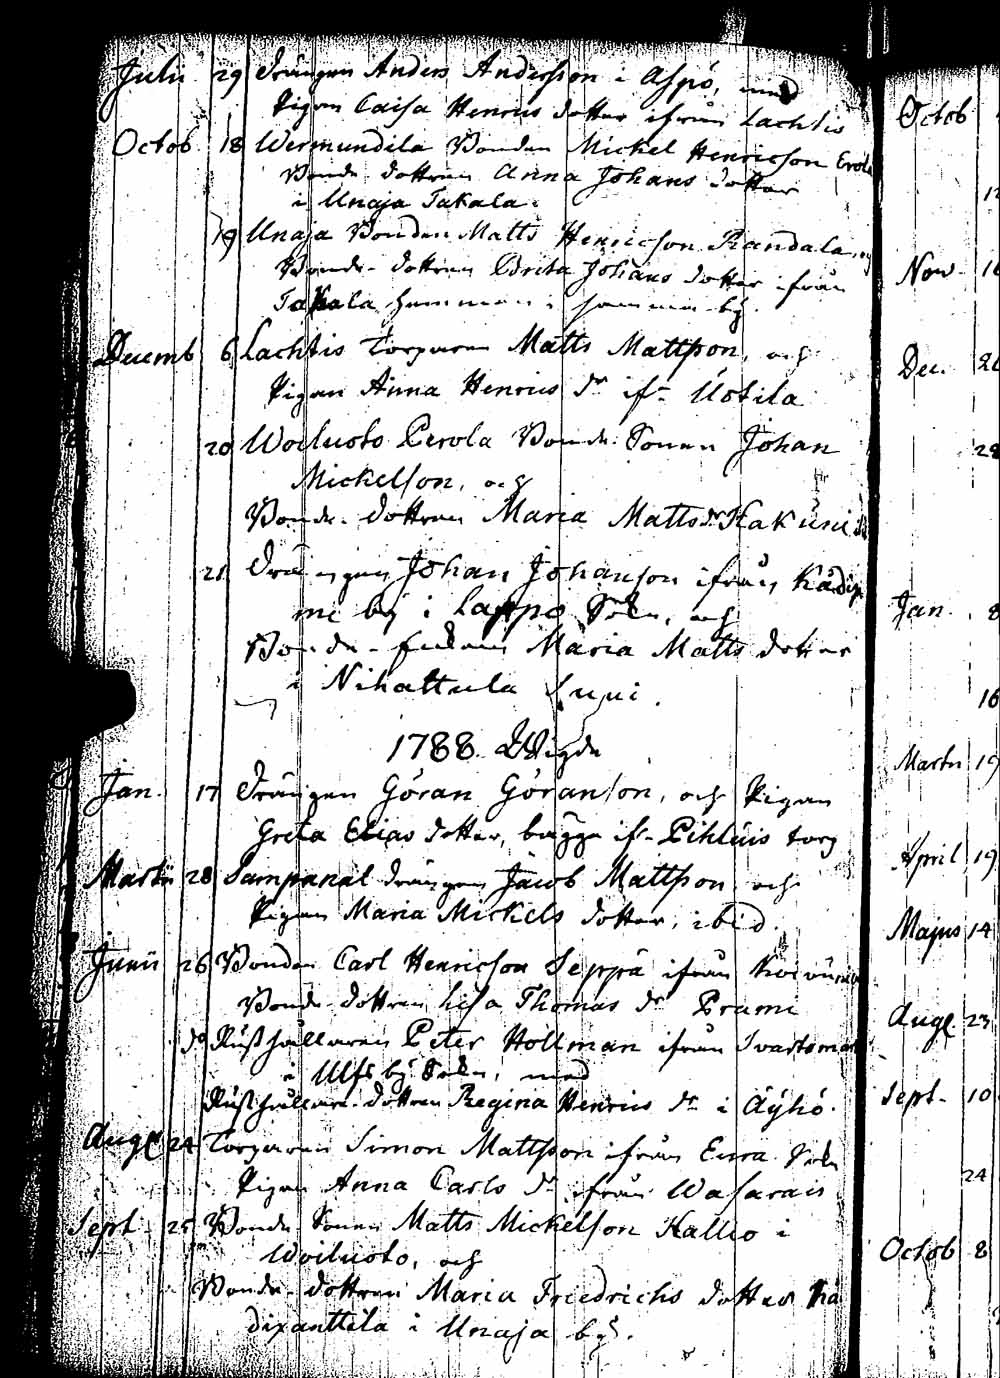 Julii 29 Drängen Anders Andersson i Aspö, med
Pigan Caisa Henrics dotter ifrån Lachtis
Octob. 18 Wermundila Bonden Mickel Henricsson Erola
Bonde-dottren Anna Johans dotter
i Unaja Takala.
19 Unaja Bonden Matts Henricsson Randala, och
Bonde-dottren Brita Johans dotter ifrån
Takala hemman i samma by.
Decemb 6 Lachtis Torparen Matts Mattsson, och
Pigan Anna Henrics dr ifr Uotila
20 Woiluoto Perola Bonde Sonen Johan
Mickelson, och
Bonde-dottren Maria Matts dr
21 Drängen Johan Johanson ifrån
me by i Lappo Sokn, och
Bonde-Enkan Maria Matts dotter
i Nihattula
1788 Wigde
Jan. 17 Drängen Göran Göranson, och Pigan
Greta Elias dotter, bägge ifr torp
Martii 28 Sampanal. drängen Jacob Mattsson och
Pigan Maria Mickels dotter, ibid.
Junii 26 Bonden Carl Henricson Seppä ifrån
Bonde-dottren Lisa Thomas dr Prami
do Rusthållaren Peter Hollman ifrån
i Ulfsby Sokn, med
Rusthållare-dottren Regina Henrics dr i Äÿhö.
Aug 24 Torparen Simon Mattsson ifrån Eura Sokn
Pigan Anna Carls dr ifrån Wasarais
Sept. 25 Bonde-Sonen Matts Mickelson Kallio i
Woiluoto, och
Bonde-dottren Maria Friedrichs dotter
dixanttila i Unaja by.
Octob
Nov. 16
Dec.
Jan. 8
16
Martii 19
April 19
Majus 14
Aug 23
Sept. 10
24
Octob 8